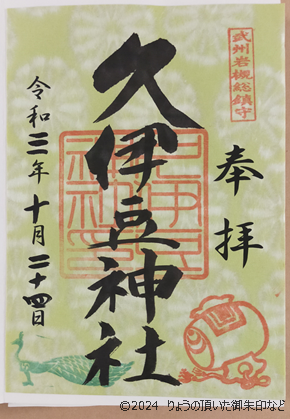 武州岩槻総鎮守
奉拝
久伊豆神社
令和三年十月二十四日
©2024 りょうの頂いた御朱印など